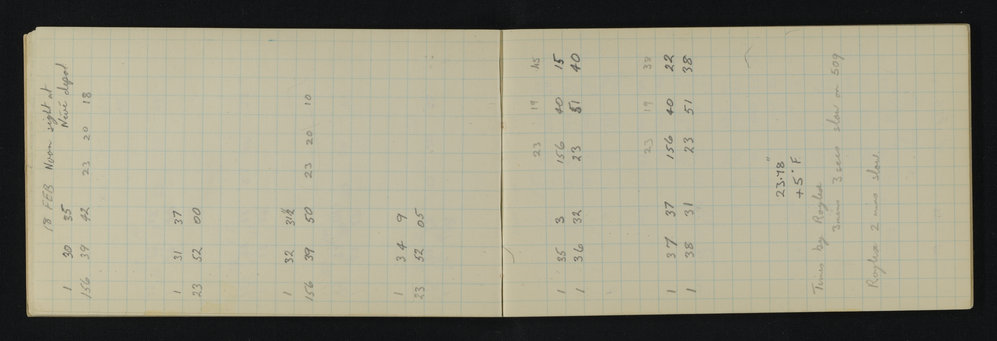 18 FEB Noon sight at
Névé depot
1 30 35
156 39 42 23 20 18
1 31 37
23 52 00
1 32 31½
156 39 50 23 20 10
1 34 9
23 52 05
23 19 45
1 35 3 156 40 15
1 36 32 23 51 40
23 19 38
1 37 37 156 40 22
1 38 31 23 51 38
23.78"
+5° F.
Times by Roylex
3mins 3 secs slow on 509
Roylex 2 mins slow.